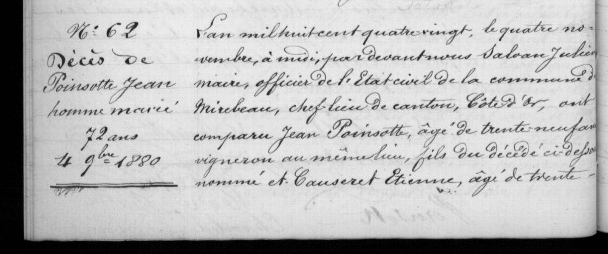 N.º 62
Décès de
Poinsotte Jean
homme marié
72 ans
4 9bre 1880
L'an mil huit cent quatre vingt, le quatre no-
vembre, à midi, par devant nous Salvan Julien
maire, officier de l'Etat civil de la commune d
Mirebeau, chef-lieu de canton, Côte d'Or, ont
comparu Jean Poinsotte, âgé de trente-neuf an
vigneron au même lieu, fils du décédé ci-dess
nommé et Causeret Etienne, âgé de trente-